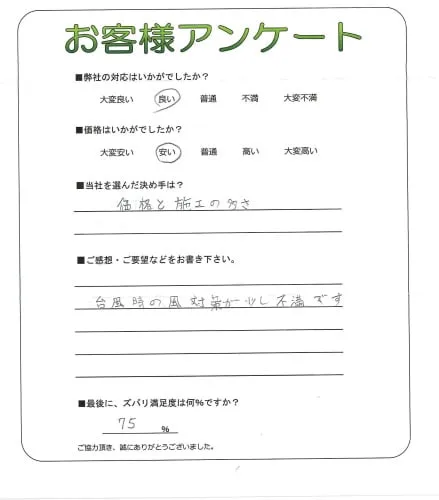 お客様アンケート
■弊社の対応はいかがでしたか？
大変良い 良い 普通 不満 大変不満
■価格はいかがでしたか？
大変安い 安い 普通 高い 大変高い
■当社を選んだ決め手は？
価格と施工の多さ
■ご感想・ご要望などをお書き下さい。
台風時の風対策が少し不満です
■最後に、ズバリ満足度は何%ですか？
75 %
ご協力頂き、誠にありがとうございました。